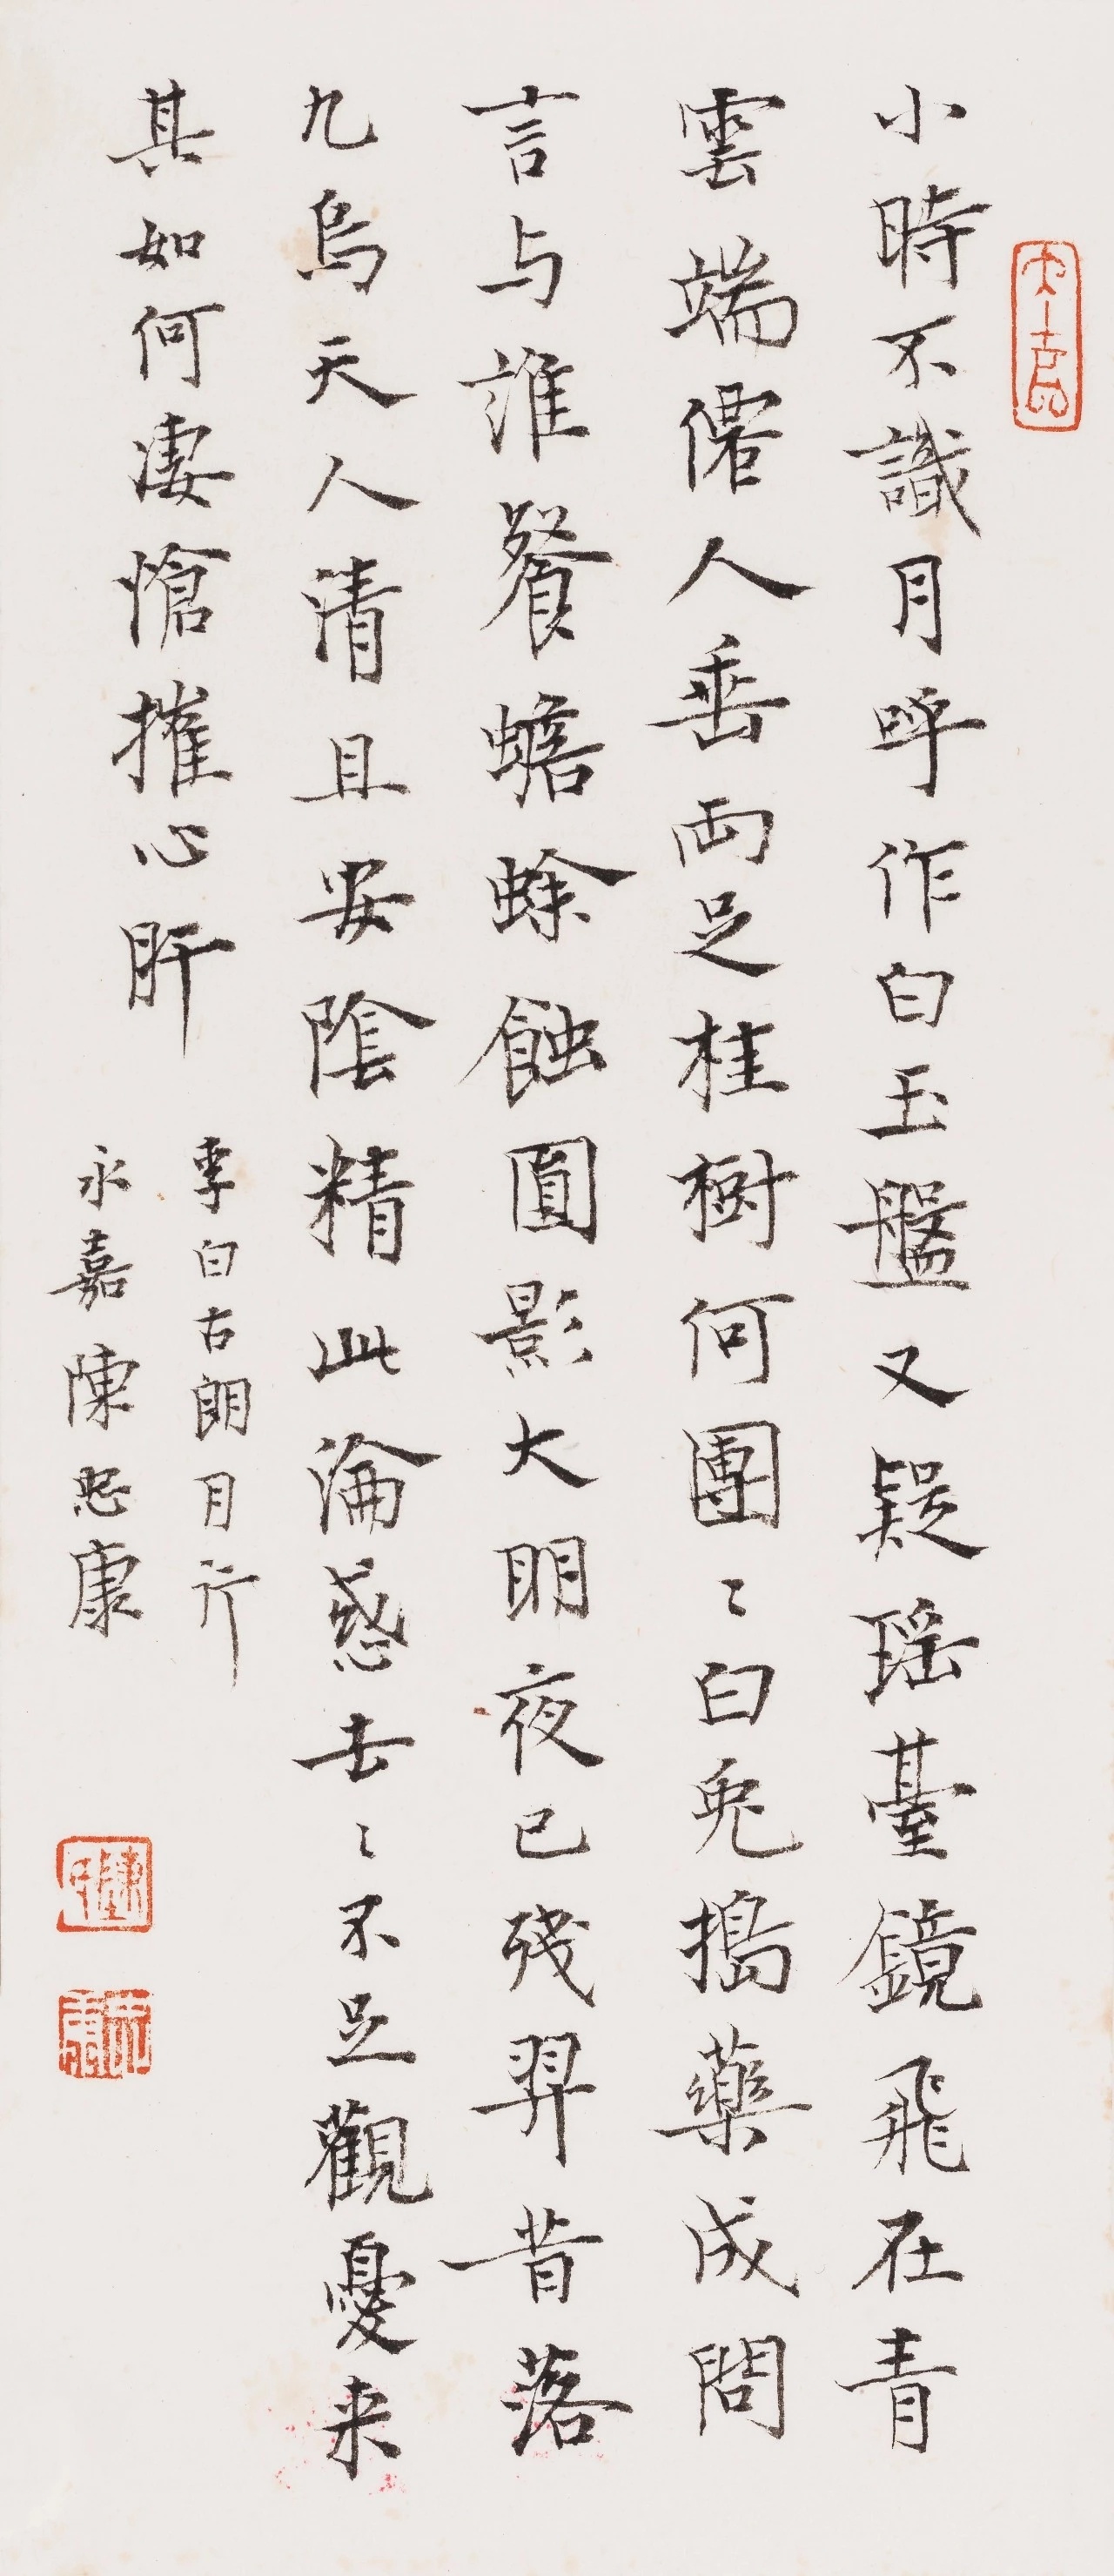 小時不識月呼作白玉盤又疑瑶臺鏡飛在青
雲端僊人垂兩足桂樹何團〻白兎搗藥成問
言与誰餐蟾蜍蝕圓影大明夜已残羿昔落
九烏天人清且安陰精此淪惑去〻不足觀憂来
其如何凄愴摧心肝
李白古朗月行
永嘉陳忠康